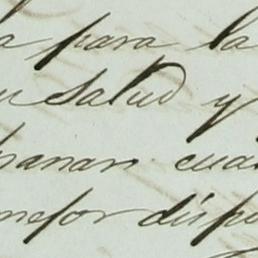 a para la
u salud y
panan cua
mejor dispo